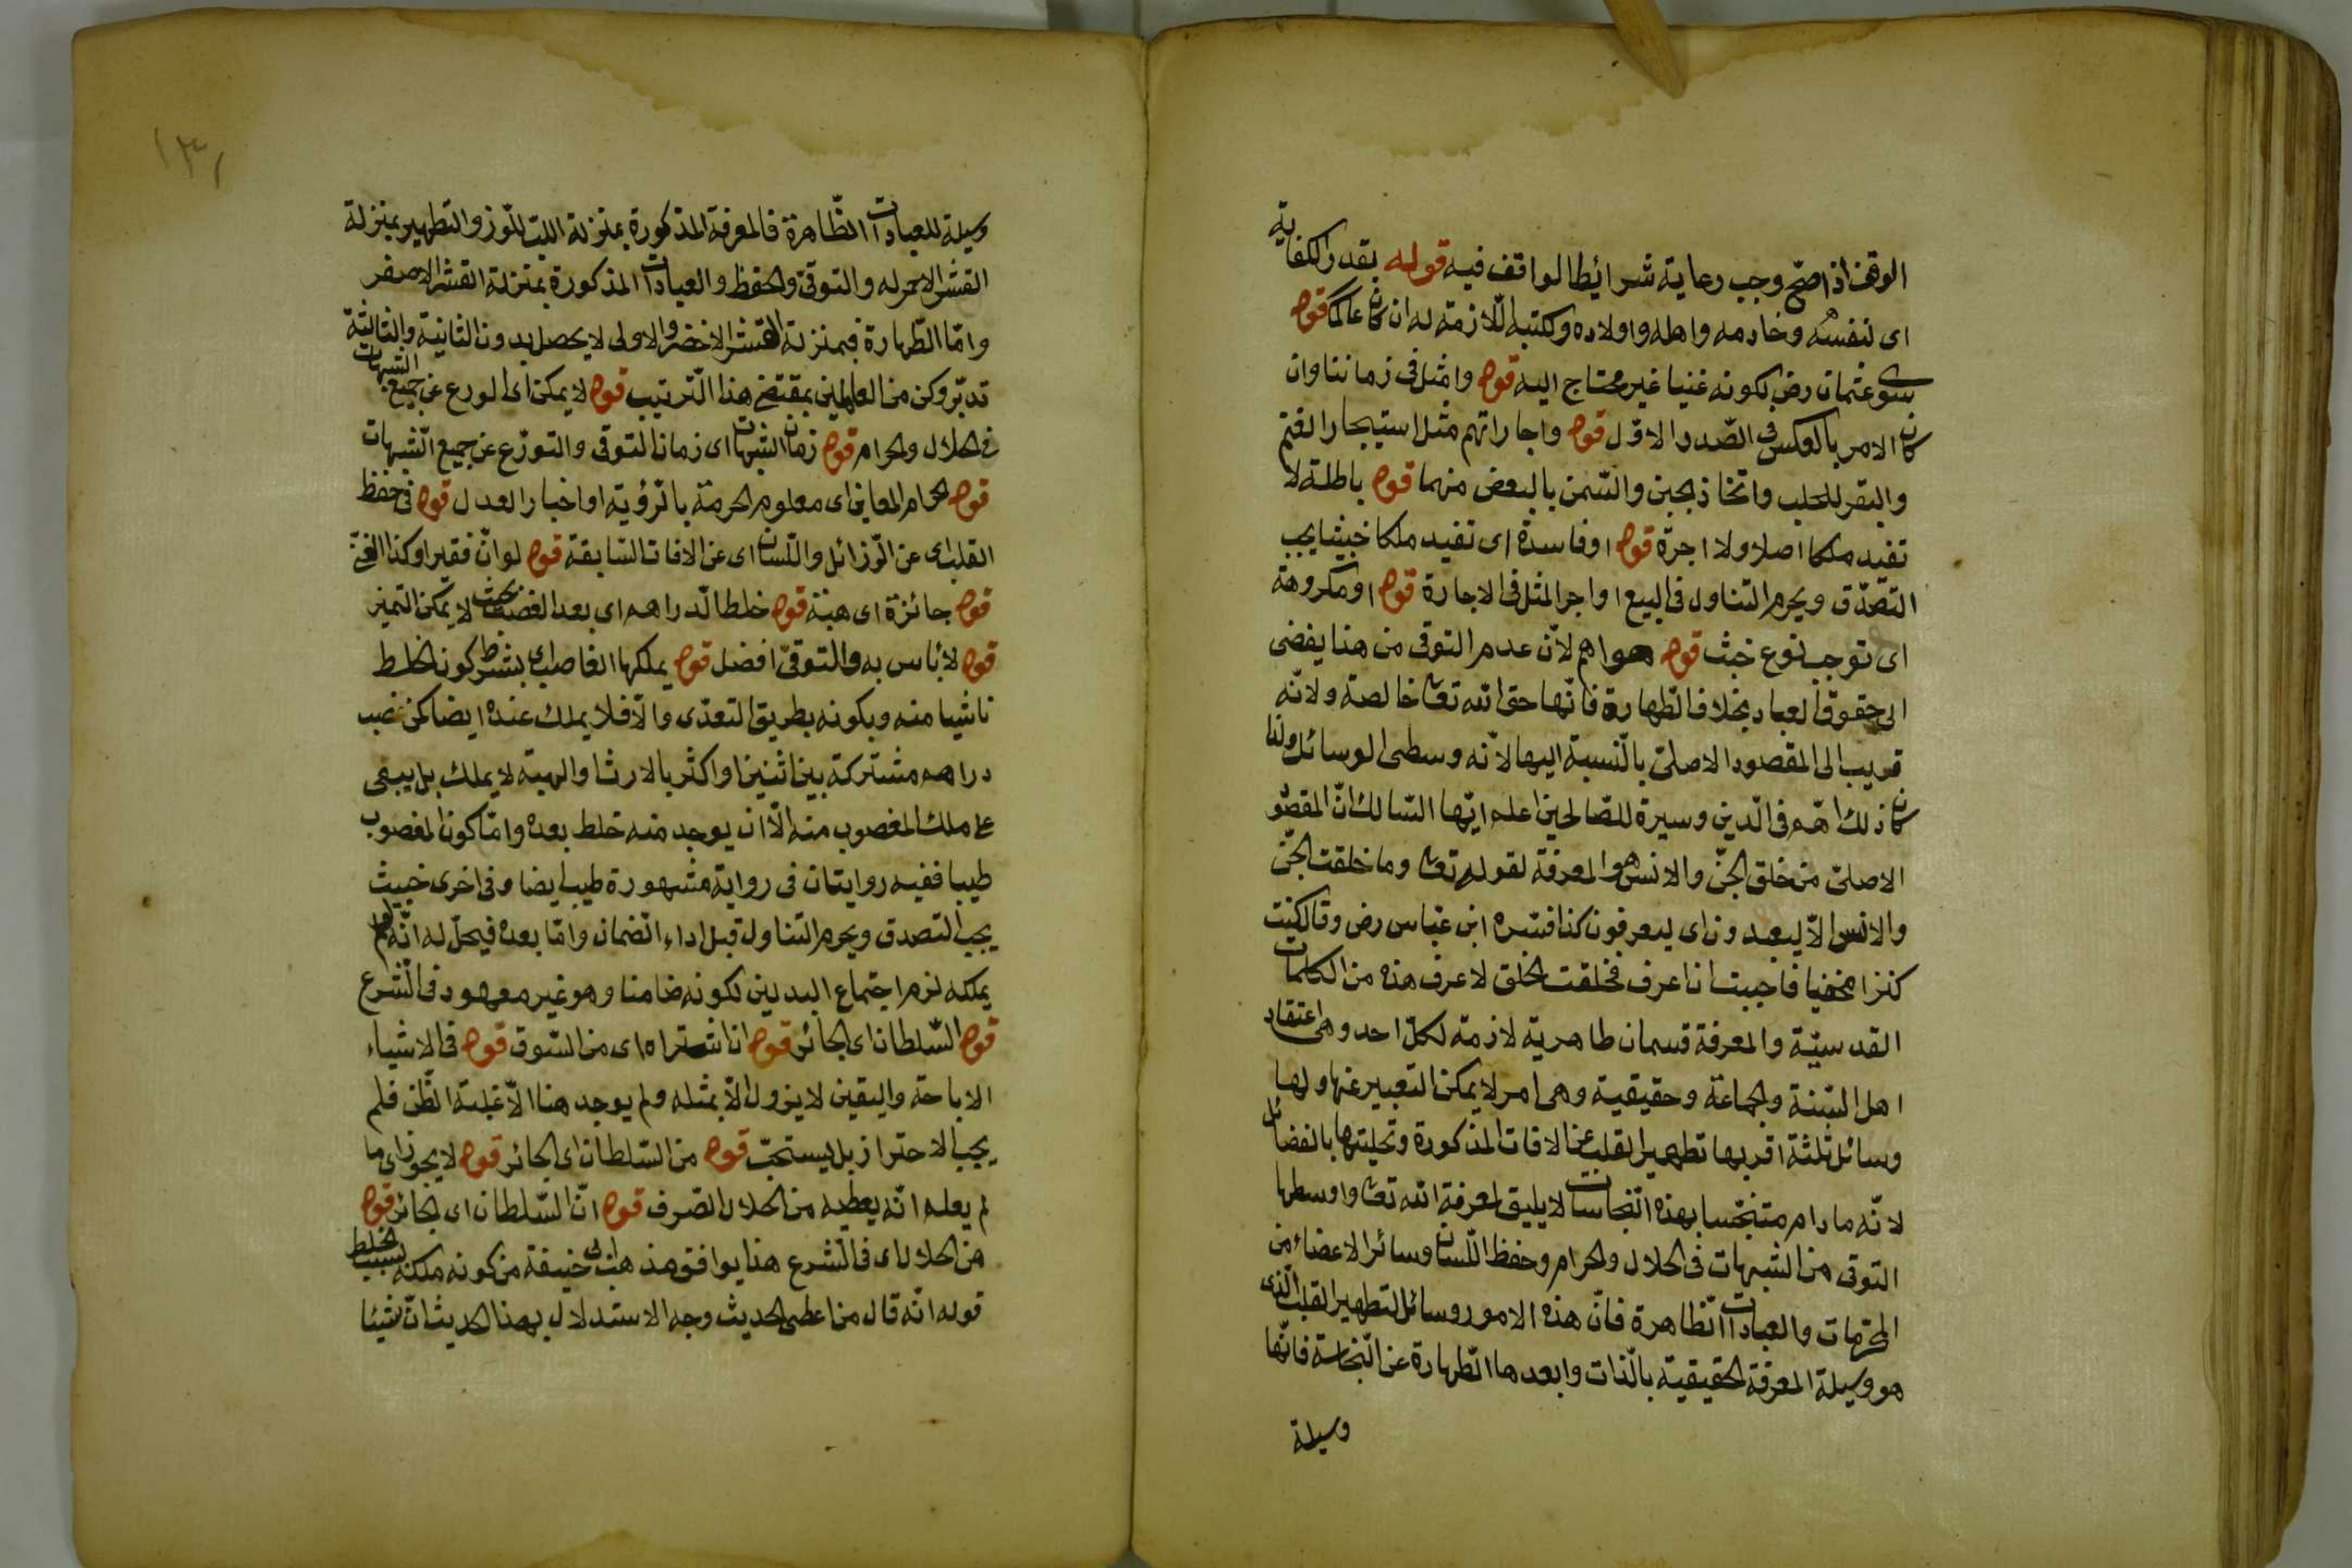 الوقف اذا صحّ وجب رعاية شرائط الواقف فيه قوله بقدر الكفاية
اى لنفسه وخادمه واهله واولاده وكتبه اللازمة له ان كان عالما قوله
سوى عثمان رض لكونه غنيا غير محتاج اليه قوله وامثل فى زماننا وان
كان الامر بالعكس فى الصّدر الاوّل قوله واجاراتهم مثل استيجار الغنم
والبقر للحلب واتخاذ الجبن والسّمن بالبعض منهما قوله باطلة لا
تفيد ملكا اصلا ولا اجرة قوله او فاسدة اى تفيد ملكا خبيثا يجب
التصدّق ويحرم التناول فى البيع او اجر المثل فى الاجارة قوله او مكروهة
اى توجب نوع خبث قوله هو اهم لانّ عدم التوقى من هذا يفضى
الى حقوق العباد بخلاف الطّهارة فانّها حق الله تعا خالصة ولانّه
قريب الى المقصود الاصلىّ بالنّسبة اليها لانّه وسطى الوسائل ولذا
كان ذلك اهمّ فى الدّين وسيرة للصّالحين اعلم ايّها السّالك انّ المقصود
الاصلىّ من خلق الجنّ والانس هو المعرفة لقوله تعا وما خلقت الجنّ
والانس الاّ ليعبدون اى ليعرفون كذا فسّره ابن عبّاس رض وقال كنت
كنزا مخفيا فاحببت ان اعرف فخلقت الخلق لاعرف هذه من الكلمات
القدسيّة والمعرفة قسمان ظاهرية لازمة لكلّ احد وهى اعتقاد
اهل السّنة والجماعة وحقيقية وهى امر لا يمكن التعبير عنها ولها
وسائل ثلثة اقربها تطهير القلب عن الافات المذكورة وتحليتها بالفضائل
لانّه ما دام متنجّسا بهذه النّجاسات لا يليق لمعرفة الله تعا واوسطها
التوقى من الشبهات فى الحلال والحرام وحفظ اللّسان وسائر الاعضاء من
المحرّمات والعبادات الظّاهرة فانّ هذه الامور وسائل لتطهير القلب الّذى
هو وسيلة المعرفة الحقيقيّة بالذّات وابعدها الطّهارة عن النّجاسة فانّها
وسيلة
١٣١
وسيلة للعبادات الظّاهرة فالمعرفة المذكورة بمنزلة اللبّ للّوز والتطهير بمنزلة
القشر الاحمر له والتوقّى والحفظ والعبادات المذكورة بمنزلة القشر الاصفر
وامّا الطّهارة فبمنزلة القشر الاخضر والاولى لا يحصل بدون الثانية والثالثة
تدبّر وكن من العاملين بمقتضى هذا التّرتيب قوله لا يمكن اى الورع عن جميع الشبهات
فى الحلال والحرام قوله زمان الشبهات اى زمان التوقى والتورّع عن جميع الشّبهات
قوله الحرام المعاين اى معلوم الحرمة بالرّؤية او اخبار العدل قوله فى حفظ
القلب اى عن الرّزائل واللّسان اى عن الافات السّابقة قوله لو انّ فقيرا وكذا الغنىّ
قوله جائزة اى هبة قوله خلط الدّراهم اى بعد الغصب بحيث لا يمكن التميز
قوله لا بأس به والتوقّى افضل قوله يملكها الغاصب اى بشرط كون الخلط
ناشيا منه وبكونه بطريق التعدّى والاّ فلا يملك عنده ايضا كمن غصب
دراهم مشتركة بين اثنين او اكثر بالارث او الهبة لا يملك بل يبقى
على ملك المغصوب منه الاّ ان يوجد منه خلط بعده وامّا كون المغصوب
طيبا ففيه روايتان فى رواية مشهورة طيب ايضا وفى اخرى خبيث
يجب التصدق ويحرم التناول قبل اداء الضّمان وامّا بعده فيحلّ له انّه لو لم
يملكه لزم اجتماع البدلين لكونه ضامنا وهو غير معهود فى الشّرع
قوله السّلطان اى الجائر قوله ان اشتراه اى من السّوق قوله فى الاشياء
الاباحة واليقين لا يزول الاّ بمثله ولم يوجد هنا الاّ غلبة الظّن فلم
يجب الاحتراز بل يستحبّ قوله من السّلطان اى الجائر قوله لا يجوز اى ما
لم يعلم انّه يعطيه من الحلال الصّرف قوله انّ السّلطان اى الجائر قوله
من الحلال اى فى الشّرع هذا يوافق مذهب ابى حنيفة من كونه ملكه بسبب الخلط
قوله انّه قال من اعطى الحديث وجه الاستدلال بهذا الحديث انّ شيئا